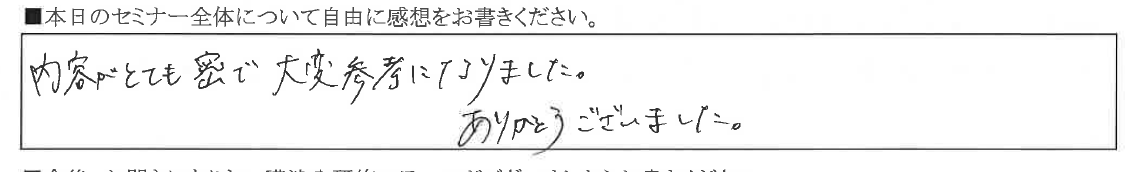 ■本日のセミナー全体について自由に感想をお書きください。
内容がとても密で大変参考になりました。
ありがとうございました。